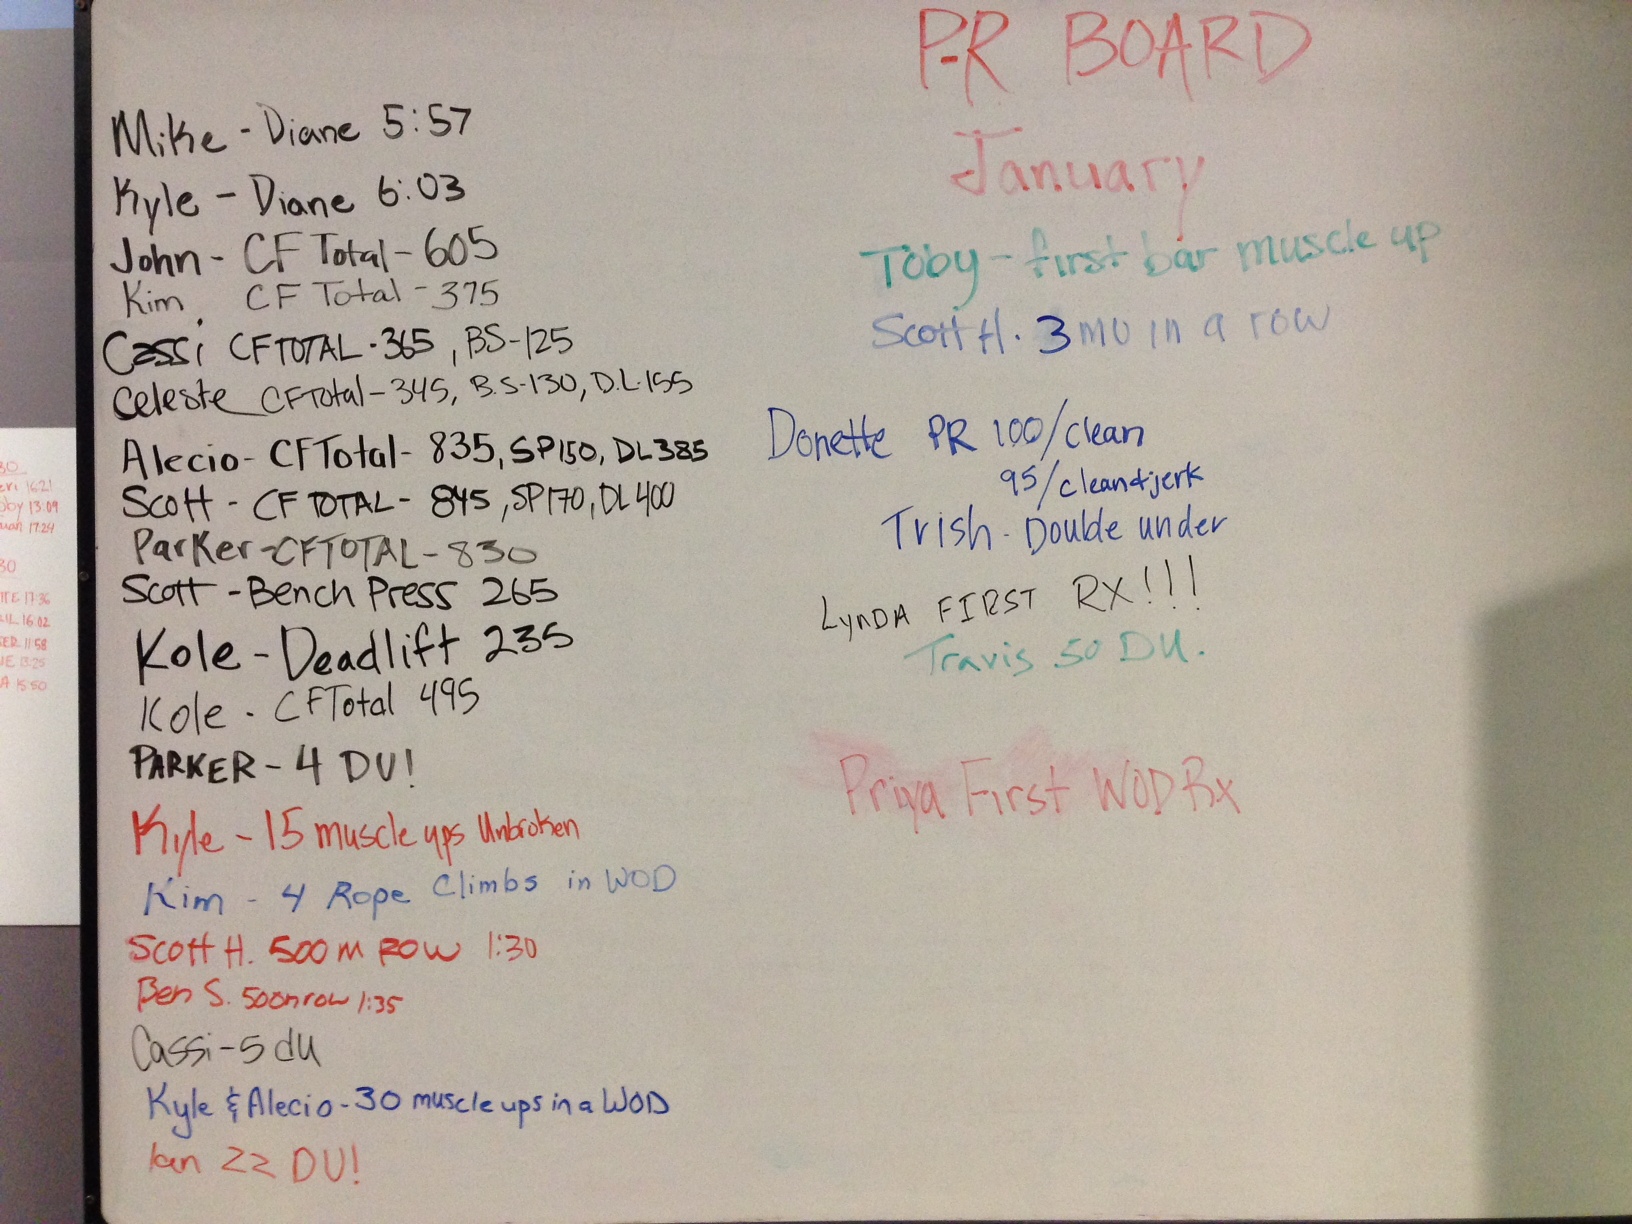 P-R BOARD
January
Mike - Diane 5:57
Kyle - Diane 6:03
John - CF Total - 605
Kim. CF Total - 375
Cassi CFTOTAL - 365, BS-125
Celeste CFTotal - 345, B.S-130, D.L-155
Alecio - CFTotal - 835, SP150, DL385
Scott - CF TOTAL - 845, SP170, DL400
Parker - CFTOTAL - 830
Scott - Bench Press 265
Kole - Deadlift 235
Kole - CFTotal 495
PARKER - 4 DU!
Kyle - 15 muscle ups Unbroken
Kim - 4 Rope Climbs in WOD
Scott H. 500 m ROW 1:30
Ben S. 500m row 1:35
Cassi - 5 du
Kyle & Alecio - 30 muscle ups in a WOD
Ian 22 DU!
Toby - first bar muscle up
Scott H. 3 mu in a row
Donette PR 100/clean
95/clean+jerk
Trish - Double under
LynDA FIRST RX!!!
Travis 50 DU.
Priya First WOD Rx
30
1621
oby 13:09
17:24
30
TTE 17:36
16:02
11:58
13:25
A 15:50